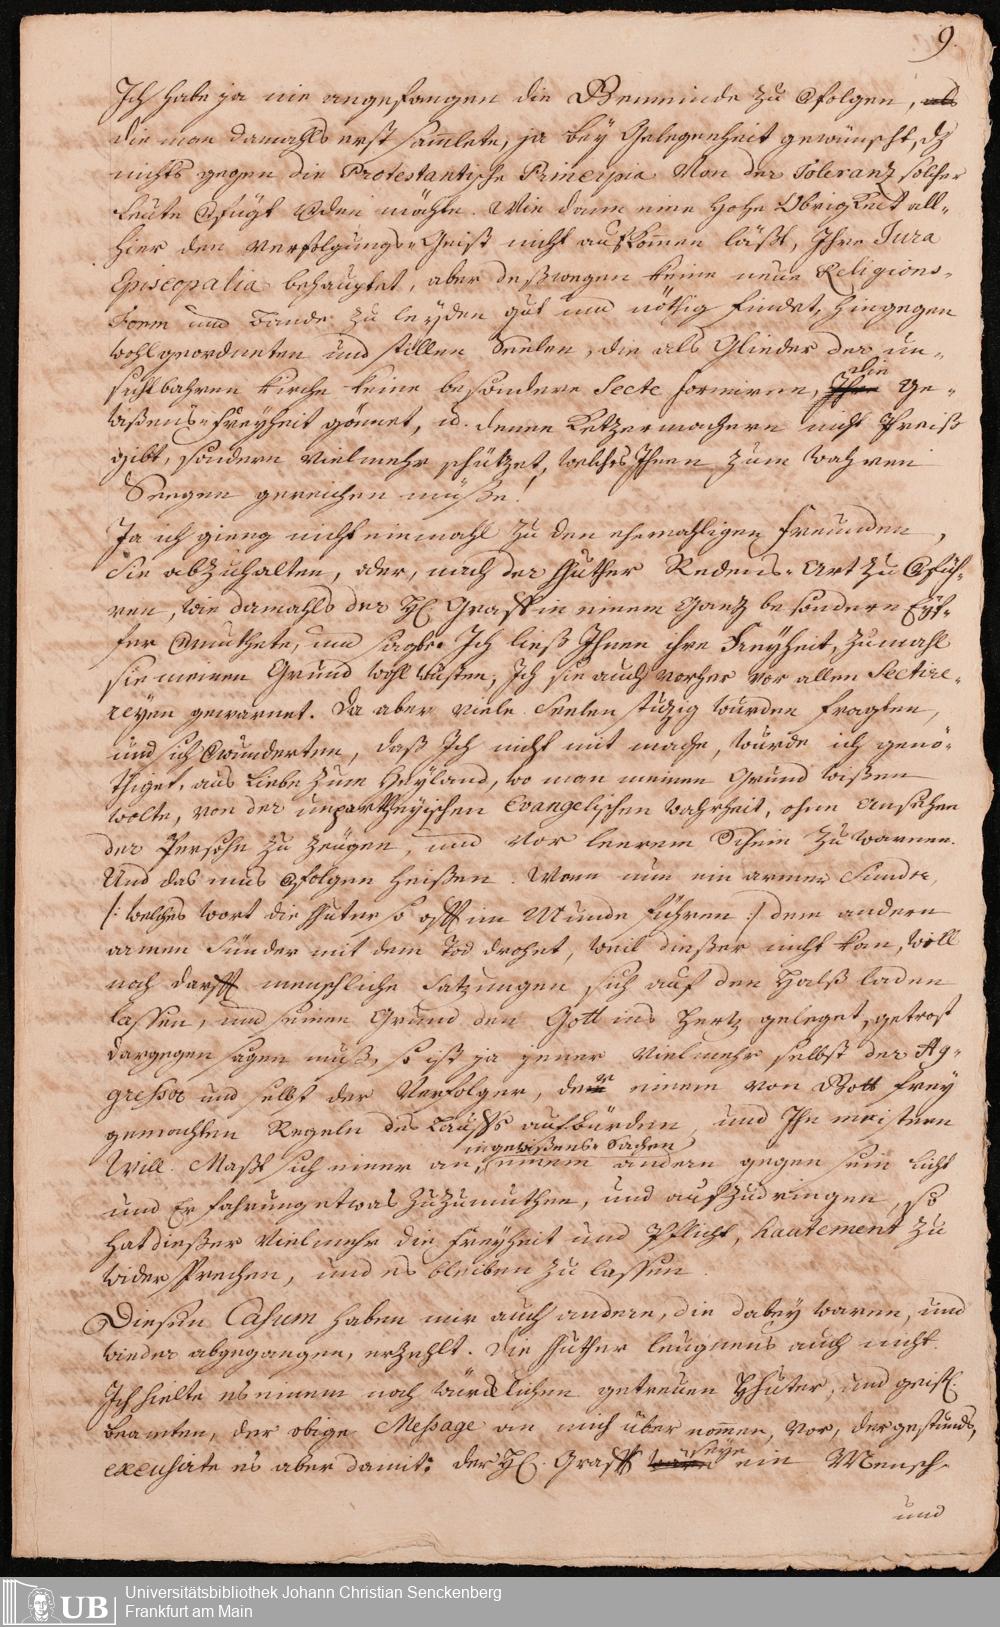 9.
Ich habe ja nie angefangen die Gemeinde zu Vfolgen, als
die man damahls erst samlete, ja bey Gelegenheit gewünscht, dß
nichts gegen die Protestantische Principia Von der Toleranz solcher
Leute Vfügt Vden möchte. Wie dann eine Hohe Obrigkeit all-
hier den Verfolgungs-Geist nicht aufkomen läßt, Ihre Jura
Episcopalia behauptet, aber deßwegen keine neue Religions-
Form und Bande zu leyden gut und nöthig findet, hingegen
wohlgeordneten und stillen Seelen, die als Glieder der un-
sichtbahren Kirche keine besondere Secte formiren, Ihre alle Ge-
wißens-Freyheit gönnet, u. denen Ketzermachern nicht Preiß
gibt, sondern vielmehr schützet, welches Ihnen zum wahren
Seegen gereichen müße!
Ja ich gieng nicht einmahl zu den ehemahligen Freunden,
Sie abzuhalten, oder, nach der Huther Redens-Art zu Vfüh-
ren, wie damahls der H. Graff in einem gantz besondern Eyf-
fer Vmuthete, und sagte. Ich ließ Ihnen ihre Freyheit, zumahl
sie meinen Grund wohl wusten, Ich sie auch vorher vor allen Sectire-
reyen gewarnet. Da aber viele Seelen stutzig wurden fragten,
und sich Vwunderten, daß Ich nicht mit mache, wurde ich genö-
thiget, aus Liebe zum Heyland, wo man meinen Grund wißen
wolte, von der unpartheyischen Evangelischen Wahrheit, ohne Ansehen
der Persohn zu zeugen, und vor leerem Schein zu warnen.
Und das mus Vfolgen heißen. Wenn nun ein armer Sünder,
/: welches Wort die Huter so offt im Munde führen :/ dem andern
armen Sünder mit dem Tod drohet, weil dießer nicht kan, will
noch darff menschliche Satzungen sich auf den Halß laden
lassen, und seinen Grund den Gott ins Hertz geleget, getrost
dargegen sagen muß, so ist ja jener vielmehr selbst der Ag-
gressor und selbst der Verfolger, der einem von Gott frey
gemachten Regeln des Lauffs aufbürden, und Ihn meistern
Will. Maßt sich einer an, in gewißens-Sachen einem andern gegen sein Licht
und Erfahrung etwas zuzumuthen, und aufzudringen, so
hat dießer vielmehr die Freyheit und Pflicht, hautement zu
widersprechen, und es bleiben zu lassen.
Diesen Casum haben mir auch andere, die dabey waren, und
wieder abgegangen, erzehlt. Die Huther leugnens auch nicht.
Ich hielte es einem noch würcklichen getreuen Hhuter, und geistl.
beamten, der obige Message an mich über nomen, vor, der gestunds,
excusirte es aber damit: der H. Graff wäre seye ein Mensch
und
Universitätsbibliothek Johann Christian Senckenberg
Frankfurt am Main
UB